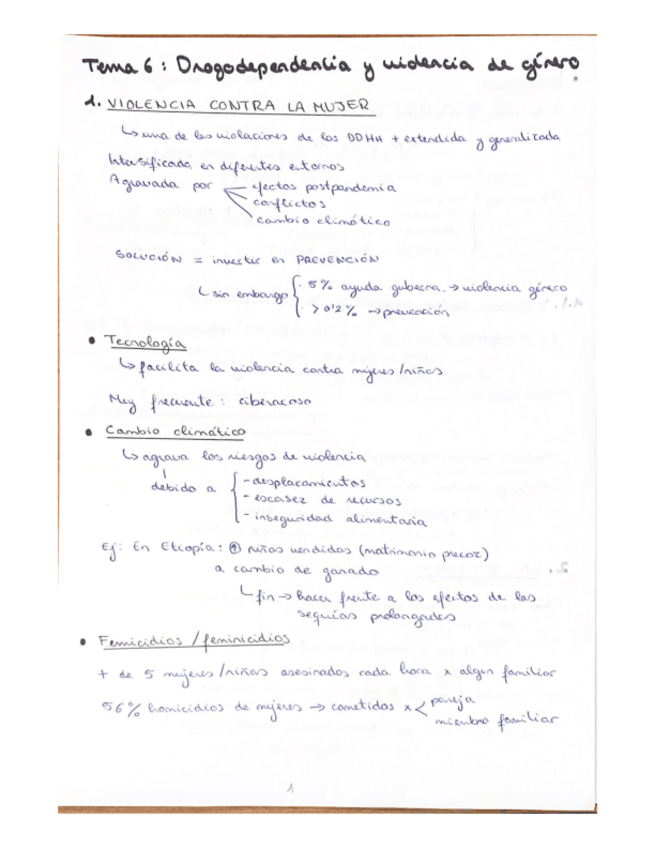 Tema 6: Drogodependencia y violencia de género.
1. VIOLENCIA CONTRA LA MUJER
↳ una de las violaciones de los DDHH + extendida y generalizada
Intensificada en diferentes entornos
Agravada por efectos postpandemia
conflictos
cambio climático
SOLUCIÓN = invertir en PREVENCIÓN
↳ sin embargo { · 5% ayuda guberna. → violencia género
· > 0'2% → prevención
• Tecnología
↳ facilita la violencia contra mujeres/niñas
Muy frecuente: ciberacoso
• Cambio climático
↳ agrava los riesgos de violencia
debido a { - desplacamientos
- escasez de recursos
- inseguridad alimentaria
Ej: En Etiopía: ⊕ niñas vendidas (matrimonio precoz)
a cambio de ganado
↳ fin → hacer frente a los efectos de las
sequías prolongadas
• Femicidios / feminicidios
+ de 5 mujeres/niñas asesinadas cada hora x algún familiar
56% homicidios de mujeres → cometidos x < pareja
miembro familiar
1